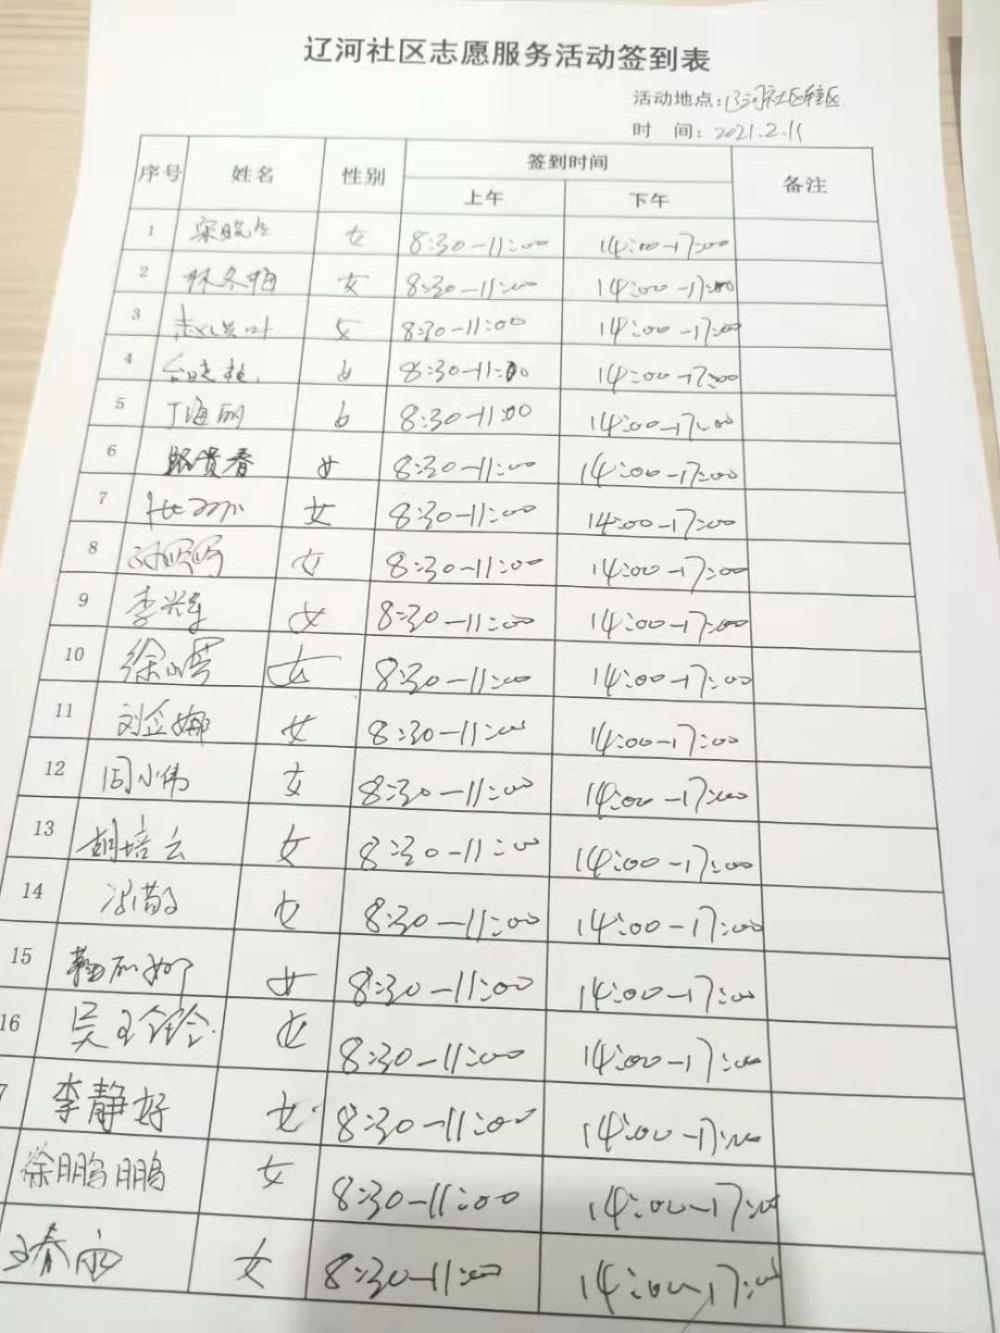 辽河社区志愿服务活动签到表
活动地点：辽河社区辖区
时 间：2021.2.11
序号 姓名 性别 签到时间 备注
上午 下午
1 女 8:30-11:00 14:00-17:00
2 林冬梅 女 8:30-11:00 14:00-17:00
3 女 8:30-11:00 14:00-17:00
4 女 8:30-11:00 14:00-17:00
5 丁海丽 女 8:30-11:00 14:00-17:00
6 路贵春 女 8:30-11:00 14:00-17:00
7 女 8:30-11:00 14:00-17:00
8 女 8:30-11:00 14:00-17:00
9 女 8:30-11:00 14:00-17:00
10 女 8:30-11:00 14:00-17:00
11 女 8:30-11:00 14:00-17:00
12 周小伟 女 8:30-11:00 14:00-17:00
13 胡培云 女 8:30-11:00 14:00-17:00
14 女 8:30-11:00 14:00-17:00
15 女 8:30-11:00 14:00-17:00
16 吴玉玲 女 8:30-11:00 14:00-17:00
7 李静好 女 8:30-11:00 14:00-17:00
徐鹏鹏 女 8:30-11:00 14:00-17:00
王春雨 女 8:30-11:00 14:00-17:00